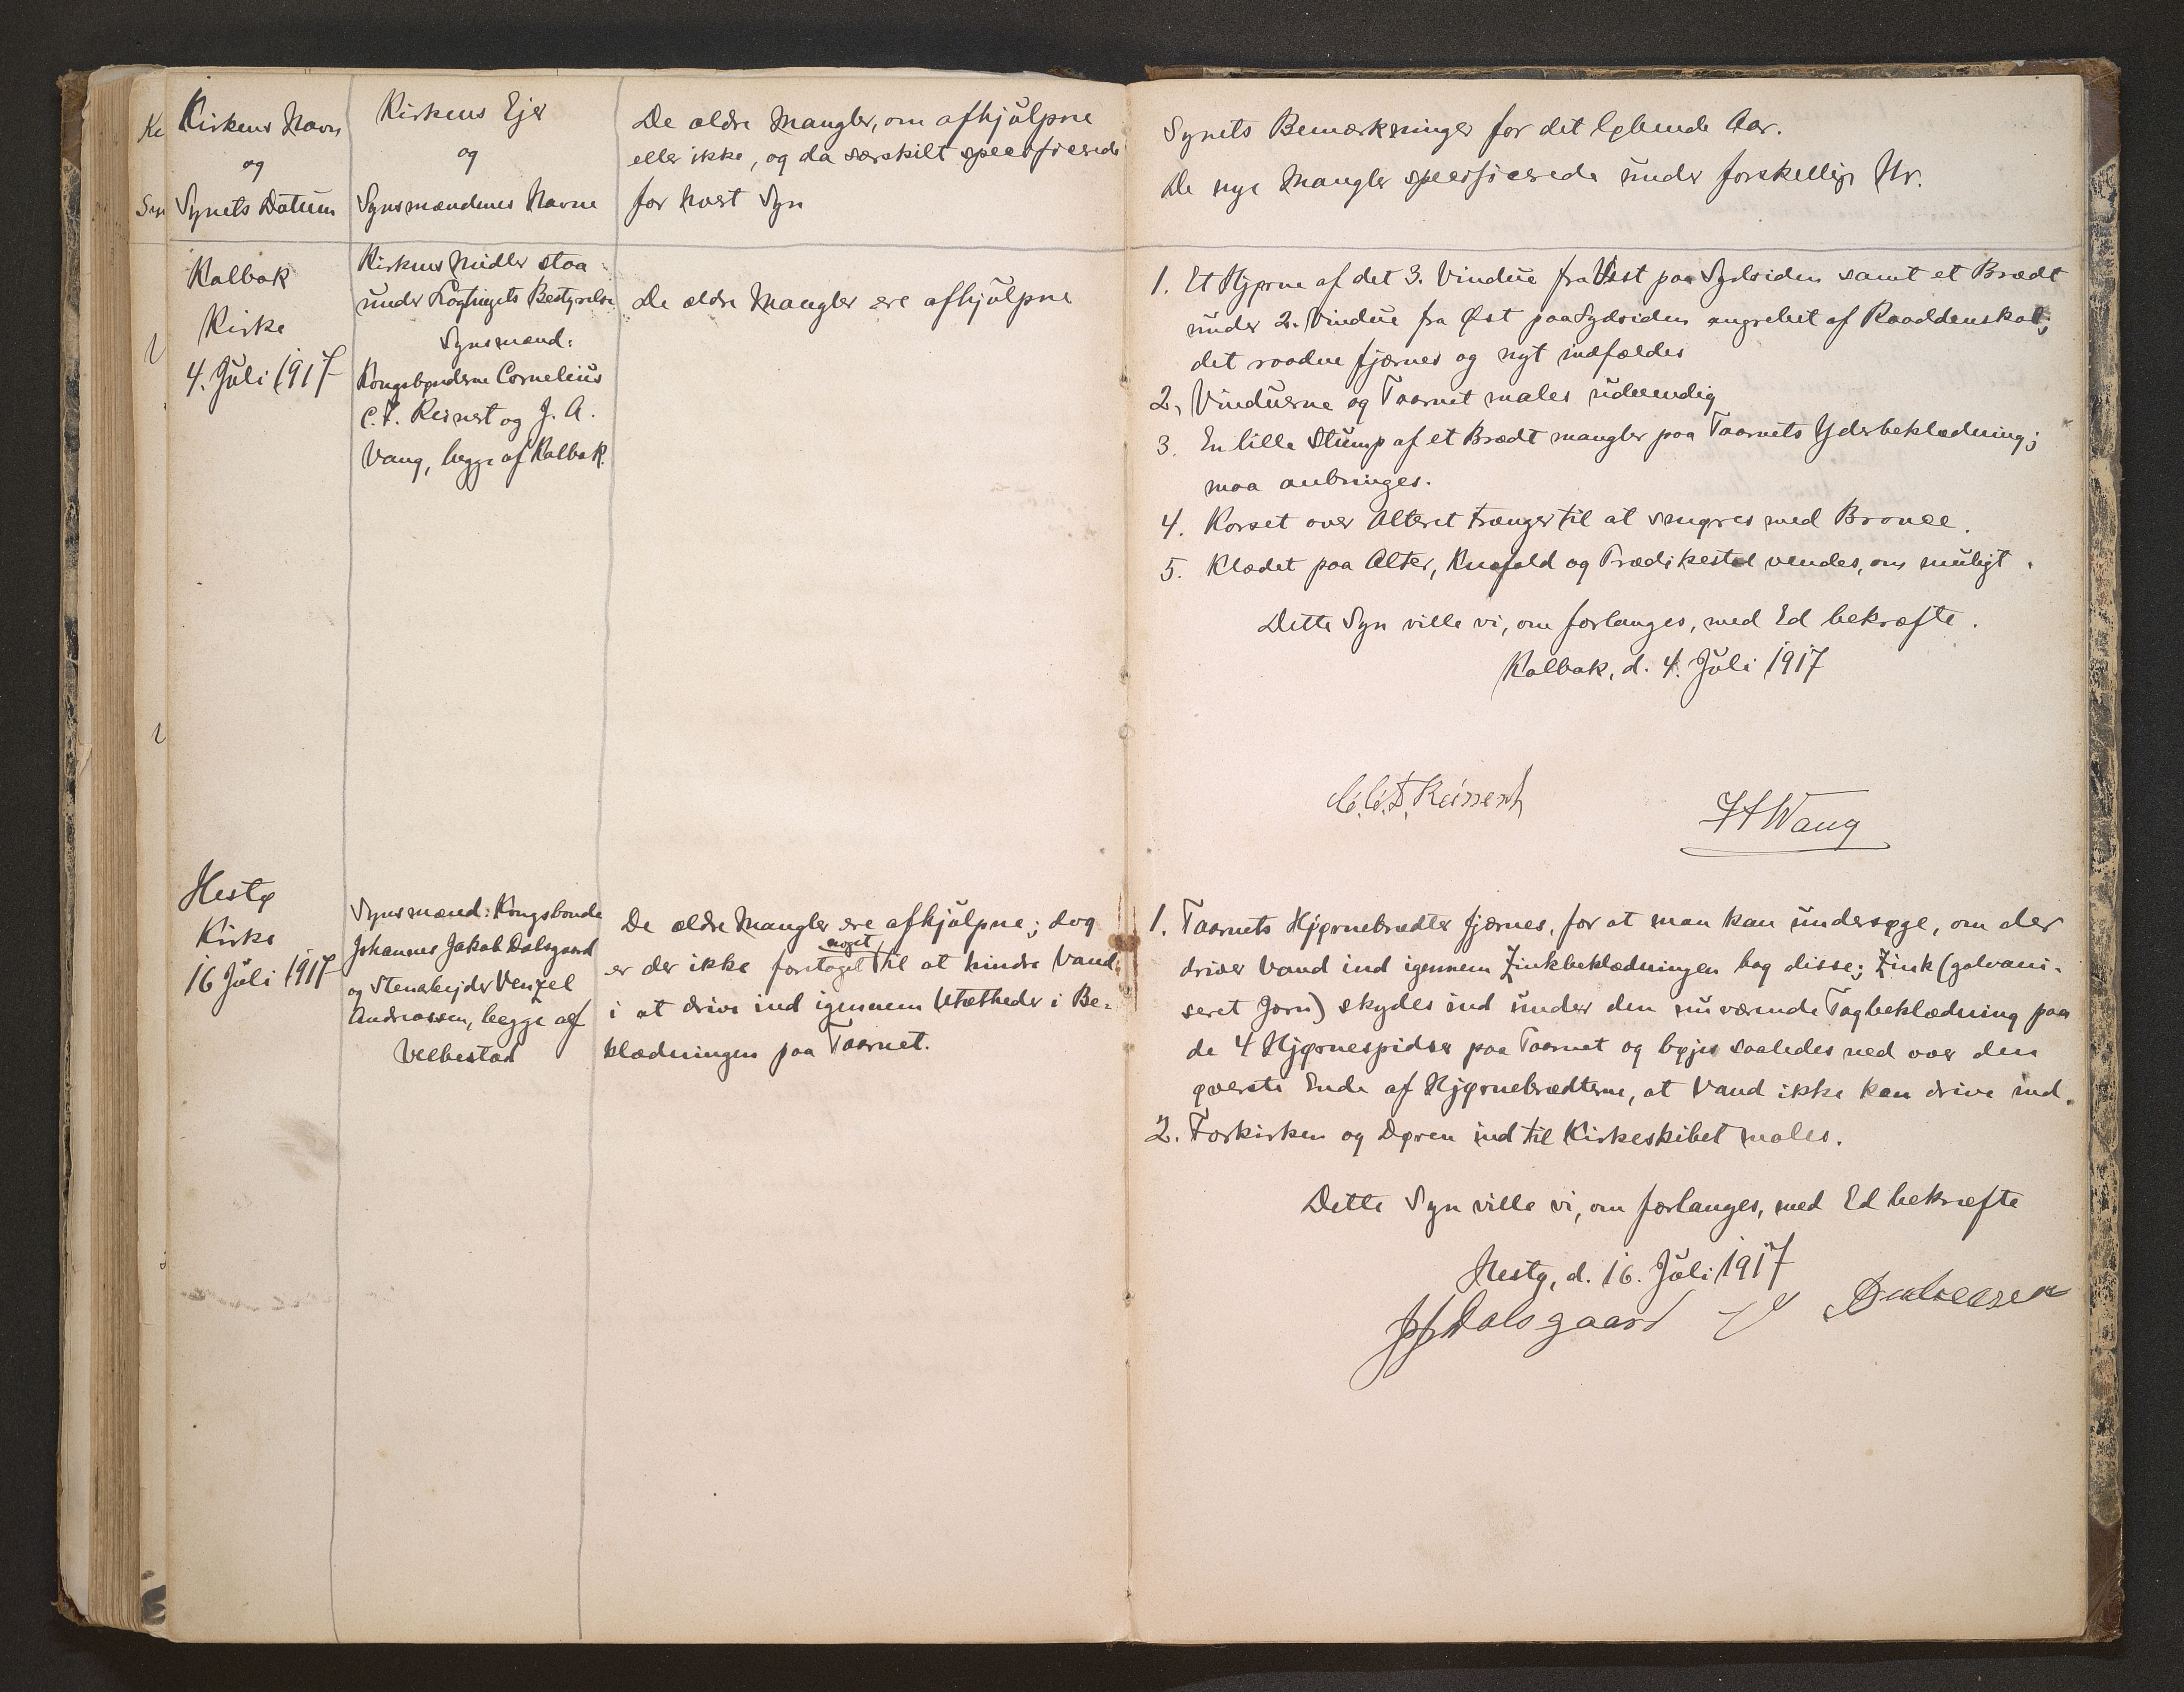 Kirkens Navn
og
Synets Datum
Kirkens Ejer
og
Synsmændenes Navne
De ældre Mangler, om afhjulpne
eller ikke, og da særskilt specificerede
for hvert Syn
Kalbak
Kirke
4. Juli 1917
Kirkens Midler staa
under Lagtingets Bestyrelse
Synsmænd:
Kongsbønderne Cornelius
C. F. Reinert og J. A.
Vang, begge af Kalbak.
De ældre Mangler ere afhjulpne
Hestø
Kirke
16 Juli 1917
Synsmænd: Kongsbonde
Johannes Jakob Dalsgaard
og Stenarbejder Venzel
Andreassen, begge af
Velbestad
De ældre Mangler ere afhjulpne; dog
er der ikke foretaget noget til at hindre Vand
i at drive ind igennem Utætheder i Be-
klædningen paa Taarnet.
Synets Bemærkninger for det løbende Aar.
De nye Mangler specificerede under forskellige Nr.
1. Et Hjørne af det 3. Vindue fra Vest paa Sydsiden samt et Brædt
under 2. Vindue fra Øst paa Sydsiden angrebet af Raaddenskab;
det raadne fjærnes og nyt indfældes
2, Vinduerne og Taarnet males udvendig
3. En lille Stump af et Brædt mangler paa Taarnets Yderbeklædning;
maa anbringes.
4. Korset over Alteret trænger til at smøres med Bronce.
5. Klædet paa Alter, Knæfald og Prædikestol vendes, om muligt.
Dette Syn ville vi, om forlanges, med Ed bekræfte.
Kalbak, d. 4. Juli 1917
C. C. F. Reinert
JAWang
1. Taarnets Hjørnebrædter fjærnes, for at man kan undersøge, om der
driver Vand ind igennem Zinkbeklædningen bag disse; Zink (galvani-
seret Jærn) skydes ind under den nuværende Tagbeklædning paa
de 4 Hjørnespidser paa Taarnet og bøjes saaledes ned over den
øverste Ende af Hjørnebrædterne, at Vand ikke kan drive ind.
2. Forkirken og Døren ind til Kirkeskibet males.
Dette Syn ville vi, om forlanges, med Ed bekræfte
Hestø, d. 16. Juli 1917
JJDalsgaard Andreasen